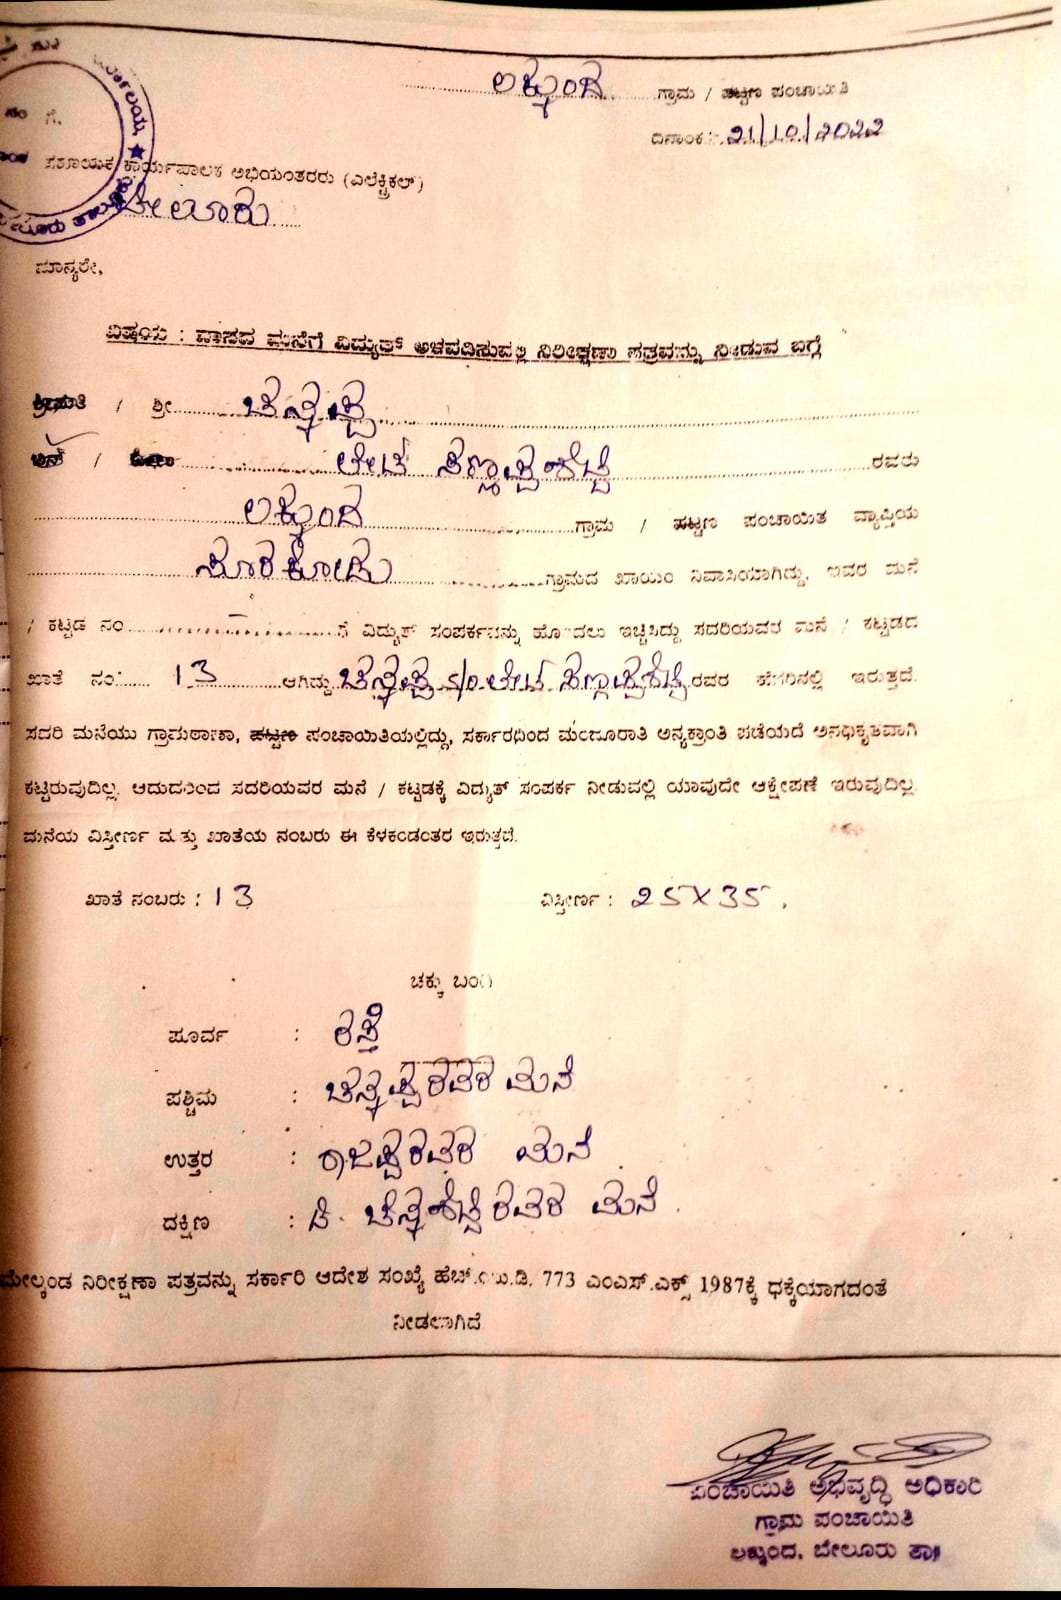 ಲಕ್ಕುಂದ ಗ್ರಾಮ / ಪಟ್ಟಣ ಪಂಚಾಯಿತಿ
ದಿನಾಂಕ: 21/10/2022
ಸಹಾಯಕ ಕಾರ್ಯಪಾಲಕ ಅಭಿಯಂತರರು (ಎಲೆಕ್ಟ್ರಿಕಲ್)
ಬೇಲೂರು
ಮಾನ್ಯರೇ,
ವಿಷಯ : ವಾಸದ ಮನೆಗೆ ವಿದ್ಯುತ್ ಅಳವಡಿಸುವಲ್ಲಿ ನಿರೀಕ್ಷಣಾ ಪತ್ರವನ್ನು ನೀಡುವ ಬಗ್ಗೆ
ಶ್ರೀಮತಿ / ಶ್ರೀ ಚನ್ನಪ್ಪ
ಬಿನ್ / ಕೋಂ ಲೇಟ್ ಸಣ್ಣಪ್ಪಶೆಟ್ಟಿ ರವರು
ಲಕ್ಕುಂದ ಗ್ರಾಮ / ಪಟ್ಟಣ ಪಂಚಾಯಿತ ವ್ಯಾಪ್ತಿಯ
ಗ್ರಾಮದ ಖಾಯಂ ನಿವಾಸಿಯಾಗಿದ್ದು, ಇವರ ಮನೆ
/ ಕಟ್ಟಡ ನಂ ಕೆ ವಿದ್ಯುತ್ ಸಂಪರ್ಕವನ್ನು ಹೊಂದಲು ಇಚ್ಚಿಸಿದ್ದು ಸದರಿಯವರ ಮನೆ / ಕಟ್ಟಡದ
ಖಾತೆ ನಂ 13 ಆಗಿದ್ದು ಚನ್ನಪ್ಪ s/o ಲೇಟ್ ಸಣ್ಣಪ್ಪಶೆಟ್ಟಿ ರವರ ಹೆಸರಿನಲ್ಲಿ ಇರುತ್ತದೆ.
ಸದರಿ ಮನೆಯು ಗ್ರಾಮಠಾಣಾ, ಪಟ್ಟಣ ಪಂಚಾಯಿತಿಯಲ್ಲಿದ್ದು, ಸರ್ಕಾರದಿಂದ ಮಂಜೂರಾತಿ ಅನ್ಯಕ್ರಾಂತಿ ಪಡೆಯದೆ ಅನಧಿಕೃತವಾಗಿ
ಕಟ್ಟಿರುವುದಿಲ್ಲ. ಆದುದರಿಂದ ಸದರಿಯವರ ಮನೆ / ಕಟ್ಟಡಕ್ಕೆ ವಿದ್ಯುತ್ ಸಂಪರ್ಕ ನೀಡುವಲ್ಲಿ ಯಾವುದೇ ಆಕ್ಷೇಪಣೆ ಇರುವುದಿಲ್ಲ.
ಮನೆಯ ವಿಸ್ತೀರ್ಣ ಮತ್ತು ಖಾತೆಯ ನಂಬರು ಈ ಕೆಳಕಂಡಂತರ ಇರುತ್ತದೆ.
ಖಾತೆ ನಂಬರು : 13 ವಿಸ್ತೀರ್ಣ : 25X35.
ಚಕ್ಕು ಬಂದಿ
ಪೂರ್ವ : ರಸ್ತೆ
ಪಶ್ಚಿಮ : ಚನ್ನಪ್ಪರವರ ಮನೆ
ಉತ್ತರ : ರಾಜಪ್ಪರವರ ಮನೆ
ದಕ್ಷಿಣ : ಚನ್ನಶೆಟ್ಟಿರವರ ಮನೆ.
ಮೇಲ್ಕಂಡ ನಿರೀಕ್ಷಣಾ ಪತ್ರವನ್ನು ಸರ್ಕಾರಿ ಆದೇಶ ಸಂಖ್ಯೆ ಹೆಚ್.ಯು.ಡಿ. 773 ಎಂಎಸ್.ಎಕ್ಸ್ 1987ಕ್ಕೆ ಧಕ್ಕೆಯಾಗದಂತೆ
ನೀಡಲಾಗಿದೆ
ಪಂಚಾಯಿತಿ ಅಭಿವೃದ್ಧಿ ಅಧಿಕಾರಿ
ಗ್ರಾಮ ಪಂಚಾಯಿತಿ
ಲಕ್ಕುಂದ, ಬೇಲೂರು ತಾ॥